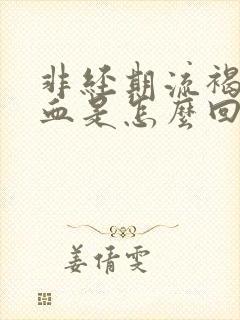 非经期流褐
血是怎麼回
姜倩雯